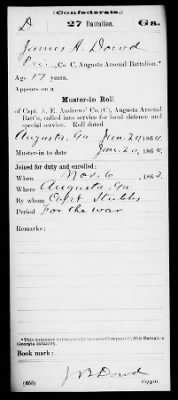 (Confederate.)
D 27 Battalion. Ga.
James A. Dowd
Pri., Co C, Augusta Arsenal Battalion.*
Age 17 years.
Appears on a
Muster-in Roll
of Capt. A. E. Andrews' Co. (C), Augusta Arsenal
Batt'n, called into service for local defence and
special service. Roll dated
Augusta, Ga Jan. 20, 1864
Muster-in date Jan. 20, 1864.
Joined for duty and enrolled:
When Nov. 6, 1863.
Where Augusta, Ga
By whom Capt Stubbs
Period For the war
Remarks:
*This company subsequently became Company C, 27th Battalion
Georgia Infantry.
Book mark:
(655) J B Dowd
Copyist.